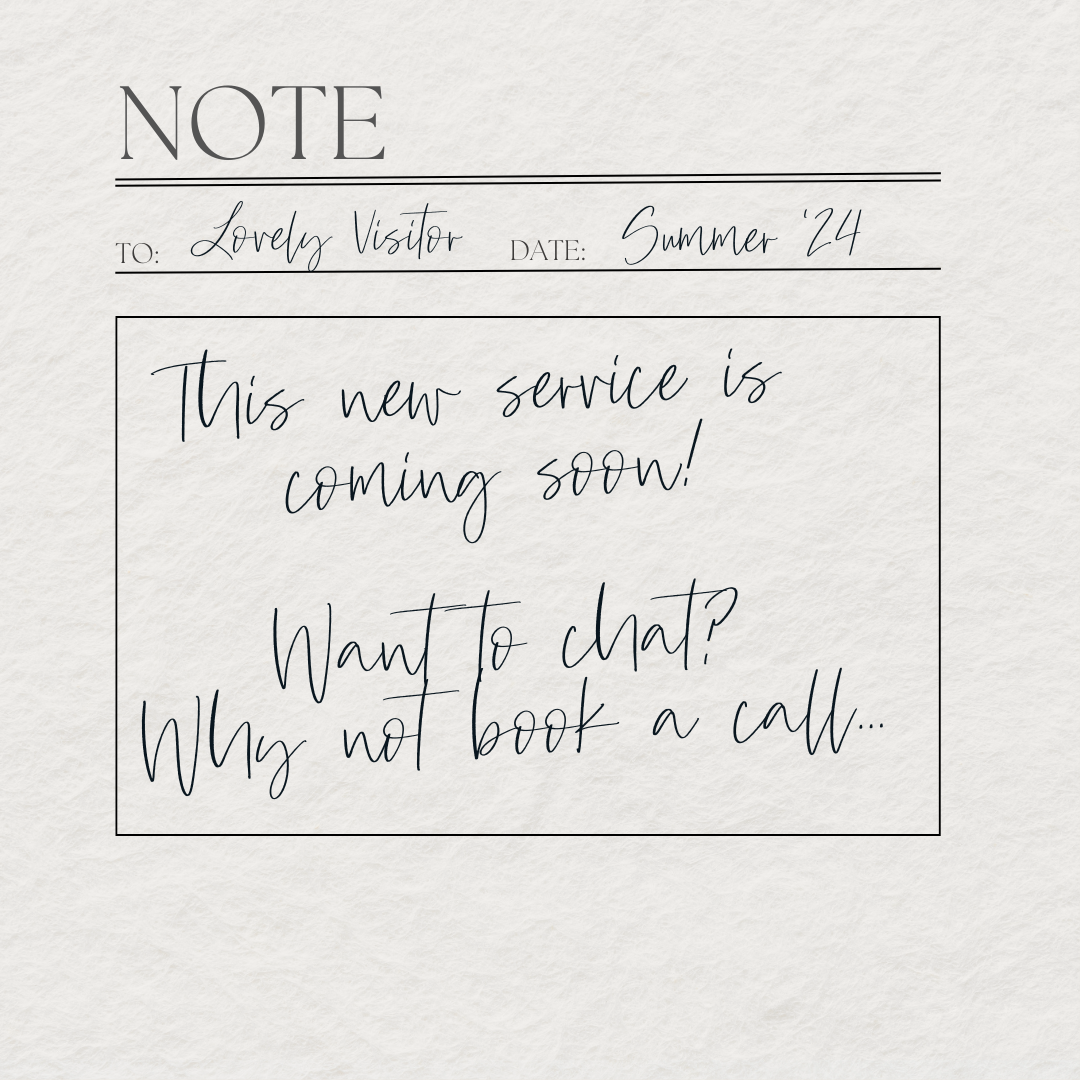 NOTE
TO: Lovely Visitor DATE: Summer '24
This new service is
coming soon!
Want to chat?
Why not book a call...